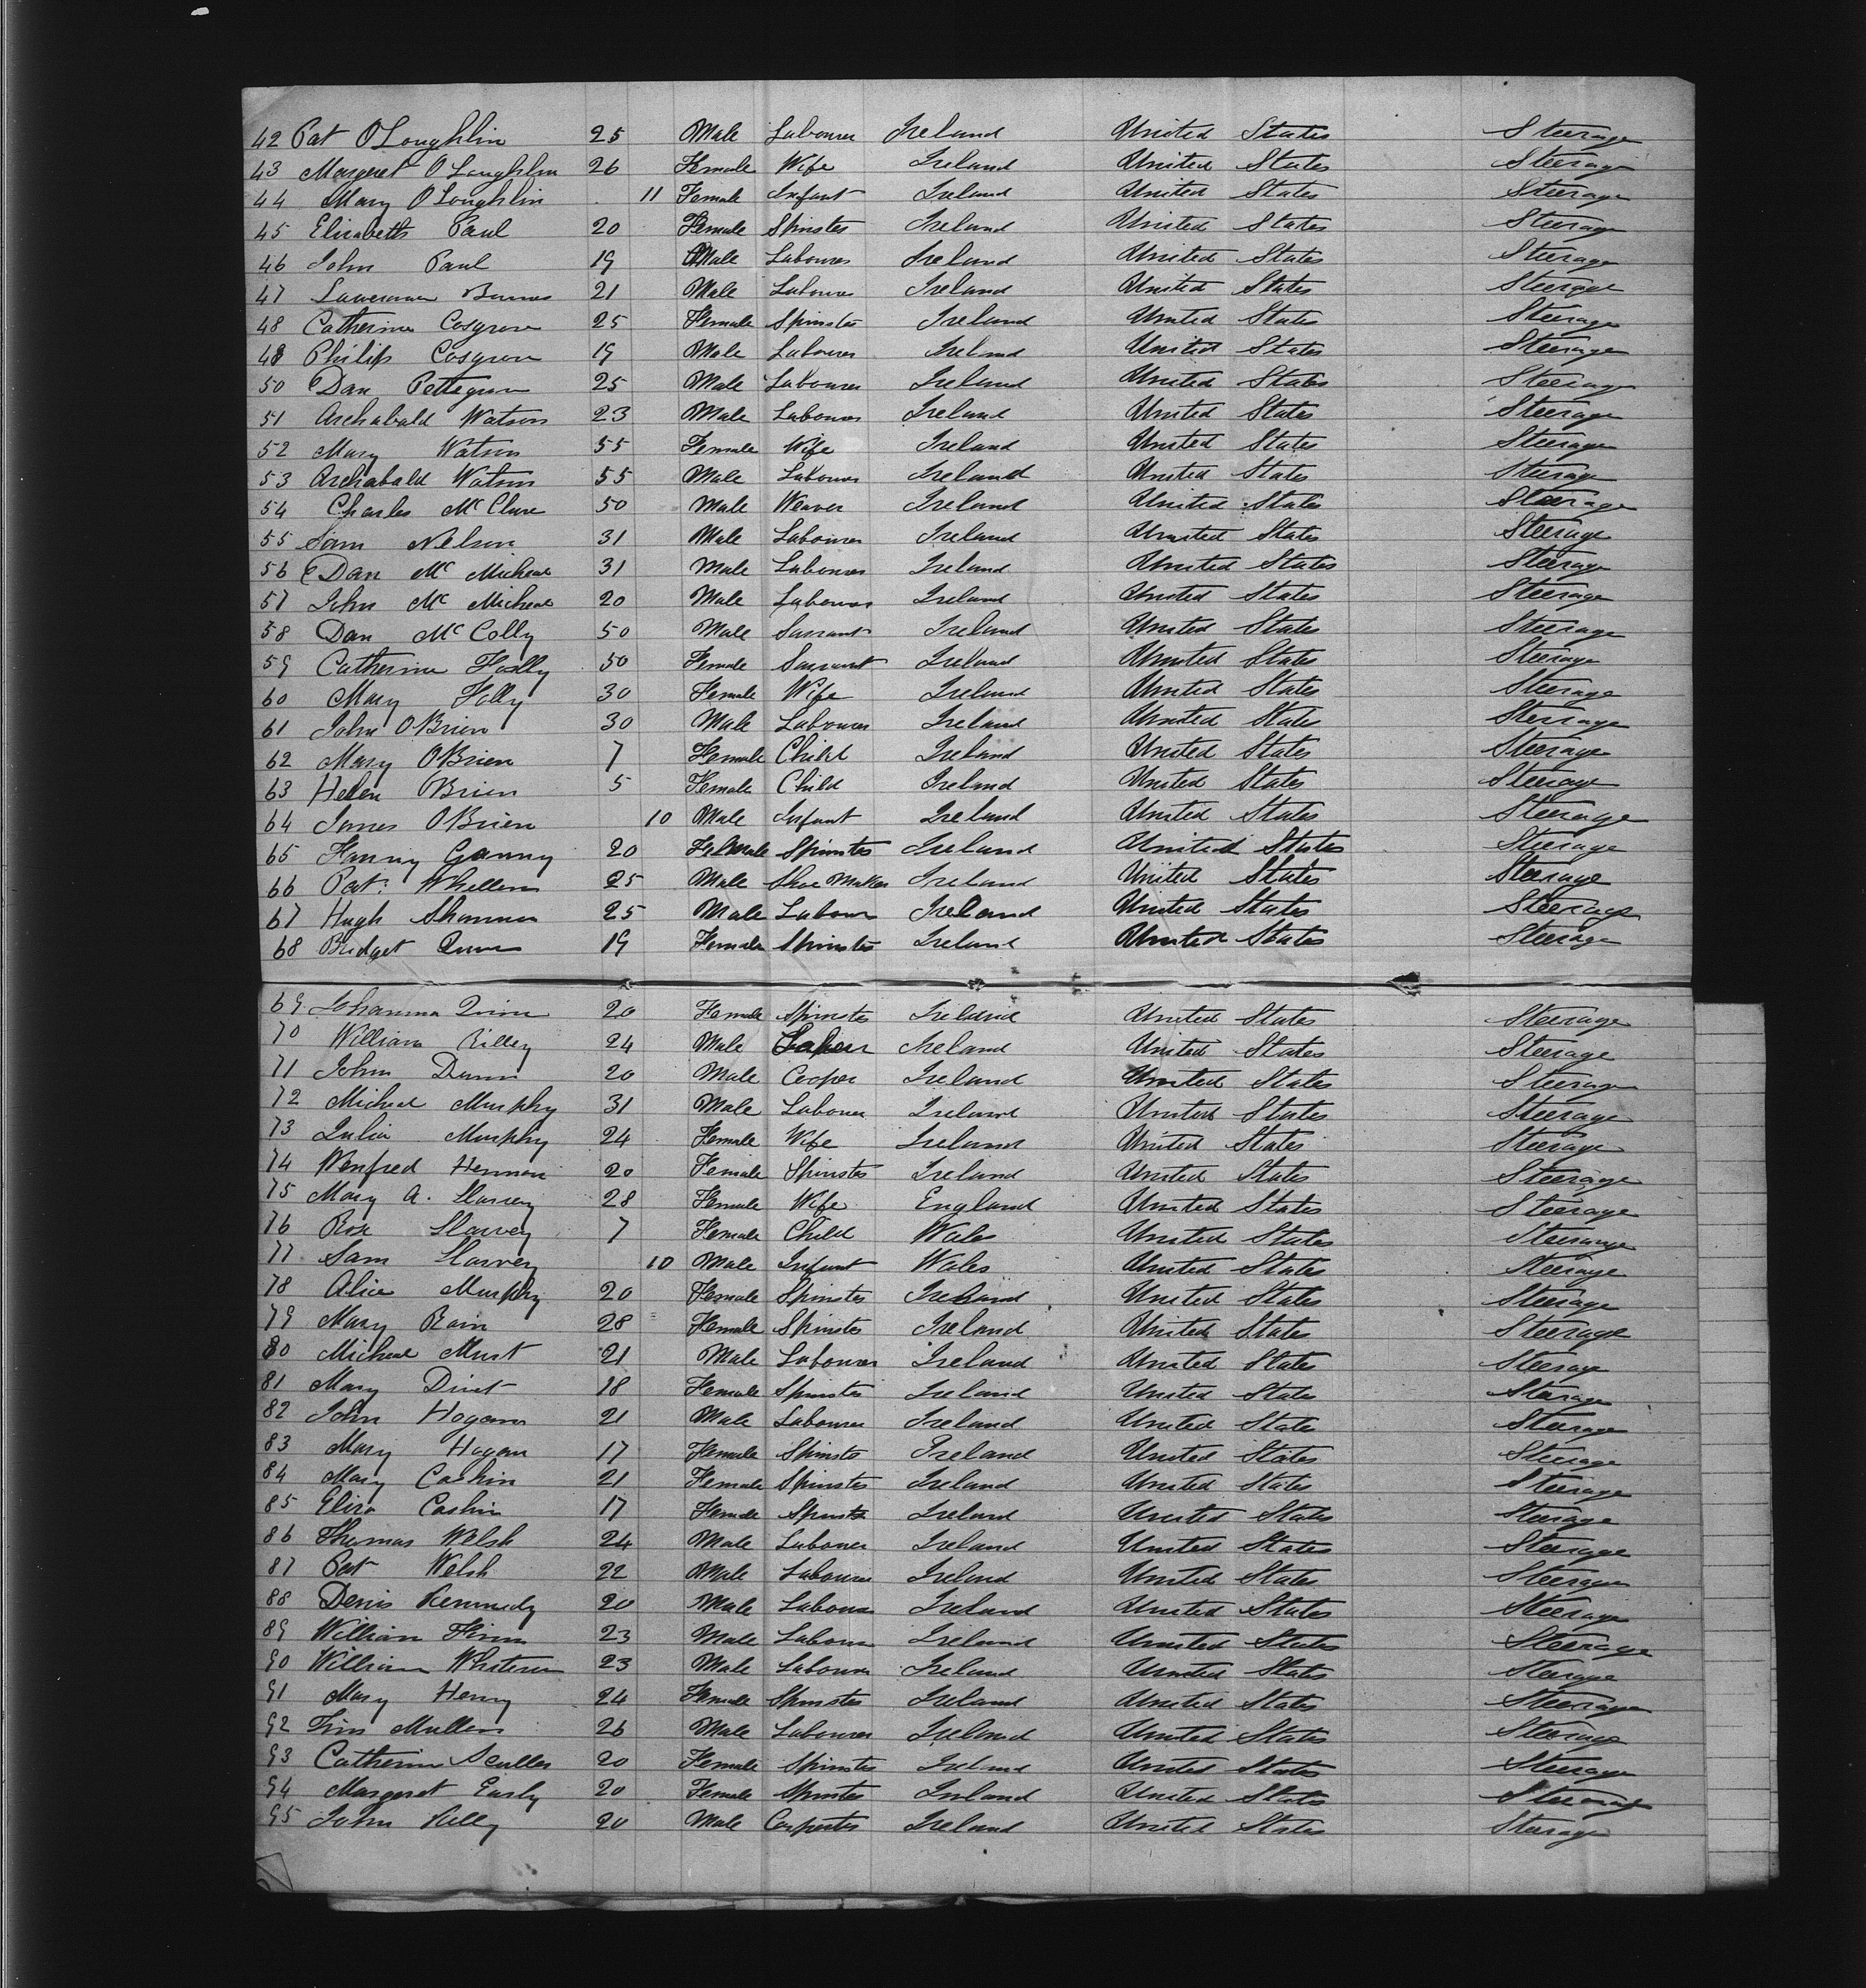 42 Pat OLoughlin 25 Male Labourer Ireland United States Steerage
43 Margeret OLoughlin 26 Female Wife Ireland United States Steerage
44 Mary OLoughlin 11 Female Infant Ireland United States Steerage
45 Elizabeth Paul 20 Female Spinster Ireland United States Steerage
46 John Paul 19 Male Labourer Ireland United States Steerage
47 21 Male Labourer Ireland United States Steerage
48 Catherine Cosgrove 25 Female Spinster Ireland United States Steerage
49 Philip Cosgrove 19 Male Labourer Ireland United States Steerage
50 Dan 25 Male Labourer Ireland United States Steerage
51 Archabald Watson 23 Male Labourer Ireland United States Steerage
52 Mary Watson 55 Female Wife Ireland United States Steerage
53 Archabald Watson 55 Male Labourer Ireland United States Steerage
54 Charles McClure 50 Male Weaver Ireland United States Steerage
55 Sam Nelson 31 Male Labourer Ireland United States Steerage
56 Dan Mc Micheal 31 Male Labourer Ireland United States Steerage
57 John Mc Micheal 20 Male Labourer Ireland United States Steerage
58 Dan McColly 50 Male Sarvant Ireland United States Steerage
59 Catherine 50 Female Sarvant Ireland United States Steerage
60 Mary 30 Female Wife Ireland United States Steerage
61 John OBrien 30 Male Labourer Ireland United States Steerage
62 Mary OBrien 7 Female Child Ireland United States Steerage
63 Helen OBrien 5 Female Child Ireland United States Steerage
64 James OBrien 10 Male Infant Ireland United States Steerage
65 Fanny Ganny 20 Female Spinster Ireland United States Steerage
66 Pat. Whellen 25 Male Shoe Maker Ireland United States Steerage
67 Hugh Shannon 25 Male Labour Ireland United States Steerage
68 Bridget 19 Female Spinster Ireland United States Steerage
69 Johanna Quinn 20 Female Spinster Ireland United States Steerage
70 William Rilley 24 Male Ireland United States Steerage
71 John Dunn 20 Male Cooper Ireland United States Steerage
72 Micheal Murphy 31 Male Labourer Ireland United States Steerage
73 Julia Murphy 24 Female Wife Ireland United States Steerage
74 Wenfred Hennan 20 Female Spinster Ireland United States Steerage
75 Mary A. Harvey 28 Female Wife England United States Steerage
76 Rose Harvey 7 Female Child Wales United States Steerage
77 Sam Harvey 10 Male Infant Wales United States Steerage
78 Alice Murphy 20 Female Spinster Ireland United States Steerage
79 Mary Rain 28 Female Spinster Ireland United States Steerage
80 Micheal Must 21 Male Labourer Ireland United States Steerage
81 Mary 18 Female Spinster Ireland United States Steerage
82 John Hogan 21 Male Labourer Ireland United States Steerage
83 Mary Hogan 17 Female Spinster Ireland United States Steerage
84 Mary Cashin 21 Female Spinster Ireland United States Steerage
85 Eliza Cashin 17 Female Spinster Ireland United States Steerage
86 Thomas Welsh 24 Male Labourer Ireland United States Steerage
87 Pat Welsh 22 Male Labourer Ireland United States Steerage
88 Denis Kennedy 20 Male Labourer Ireland United States Steerage
89 William 23 Male Labourer Ireland United States Steerage
90 William 23 Male Labourer Ireland United States Steerage
91 Mary Henry 24 Female Spinster Ireland United States Steerage
92 Mullen 26 Male Labourer Ireland United States Steerage
93 Catherine Sculler 20 Female Spinster Ireland United States Steerage
94 Margeret Early 20 Female Spinster Ireland United States Steerage
95 John Kelly 20 Male Carpenter Ireland United States Steerage